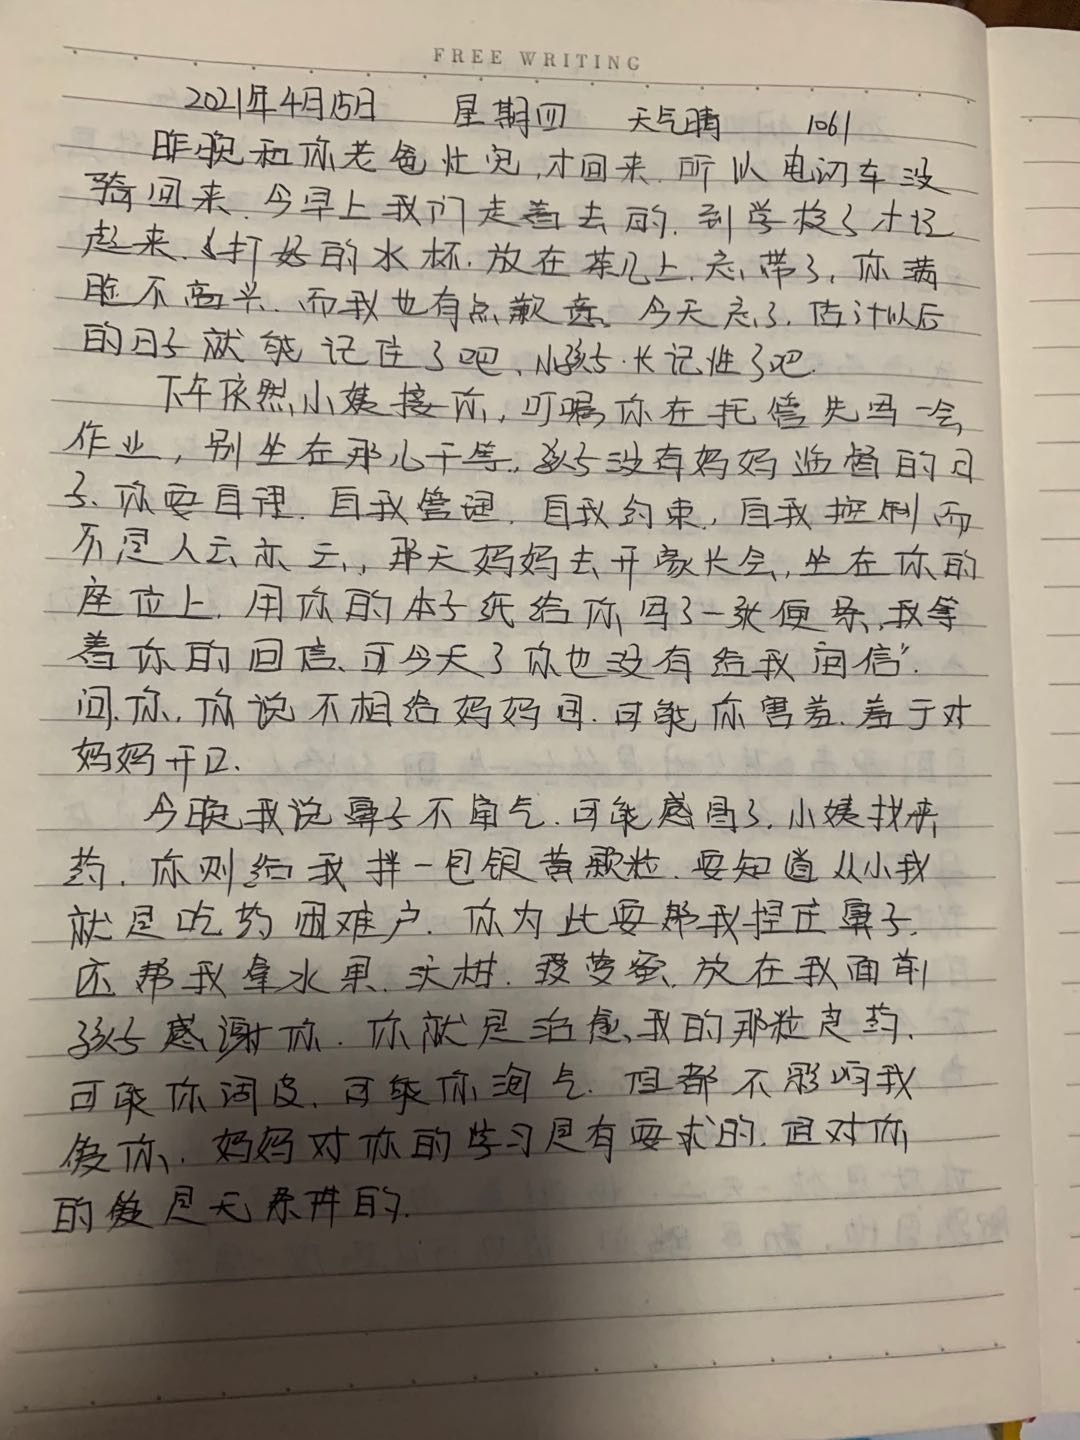 FREE WRITING
2021年4月15日 星期四 天气晴 1061
昨晚和你老爸灶完,才回来.所以电动车没
骑回来.今早上我们走着去的.到学校了才记
起来.打好的水杯.放在茶几上.忘带了,你满
脸不高兴.而我也有点歉意。今天忘了.估计以后
的日子就能记住了吧、小孩子.长记性了吧.
下午依然小姨接你,叮嘱你在托管先写一会
作业,别坐在那儿干等.孩子没有妈妈监督的日
子、你要自理.自我管理.自我约束,自我控制而
不是人云亦云,那天妈妈去开家长会,坐在你的
座位上.用你的本子纸给你写了一张便条,我等
着你的回信、可今天了你也没有给我回信.
问你,你说不相给妈妈回.可能你害羞.羞于对
妈妈开口.
今晚我说鼻子不甬气.可能感冒了.小姨找来
药.你则给我拌一包银黄颗粒.要知道从小我
就是吃药困难户.你为此要帮我捏住鼻子.
还帮我拿水果.沃柑.菠萝蜜、放在我面前
孩子感谢你.你就是治愈我的那粒良药.
可能你调皮.可能你淘气.但都不影响我
爱你.妈妈对你的学习是有要求的.但对你
的爱是无条件的.